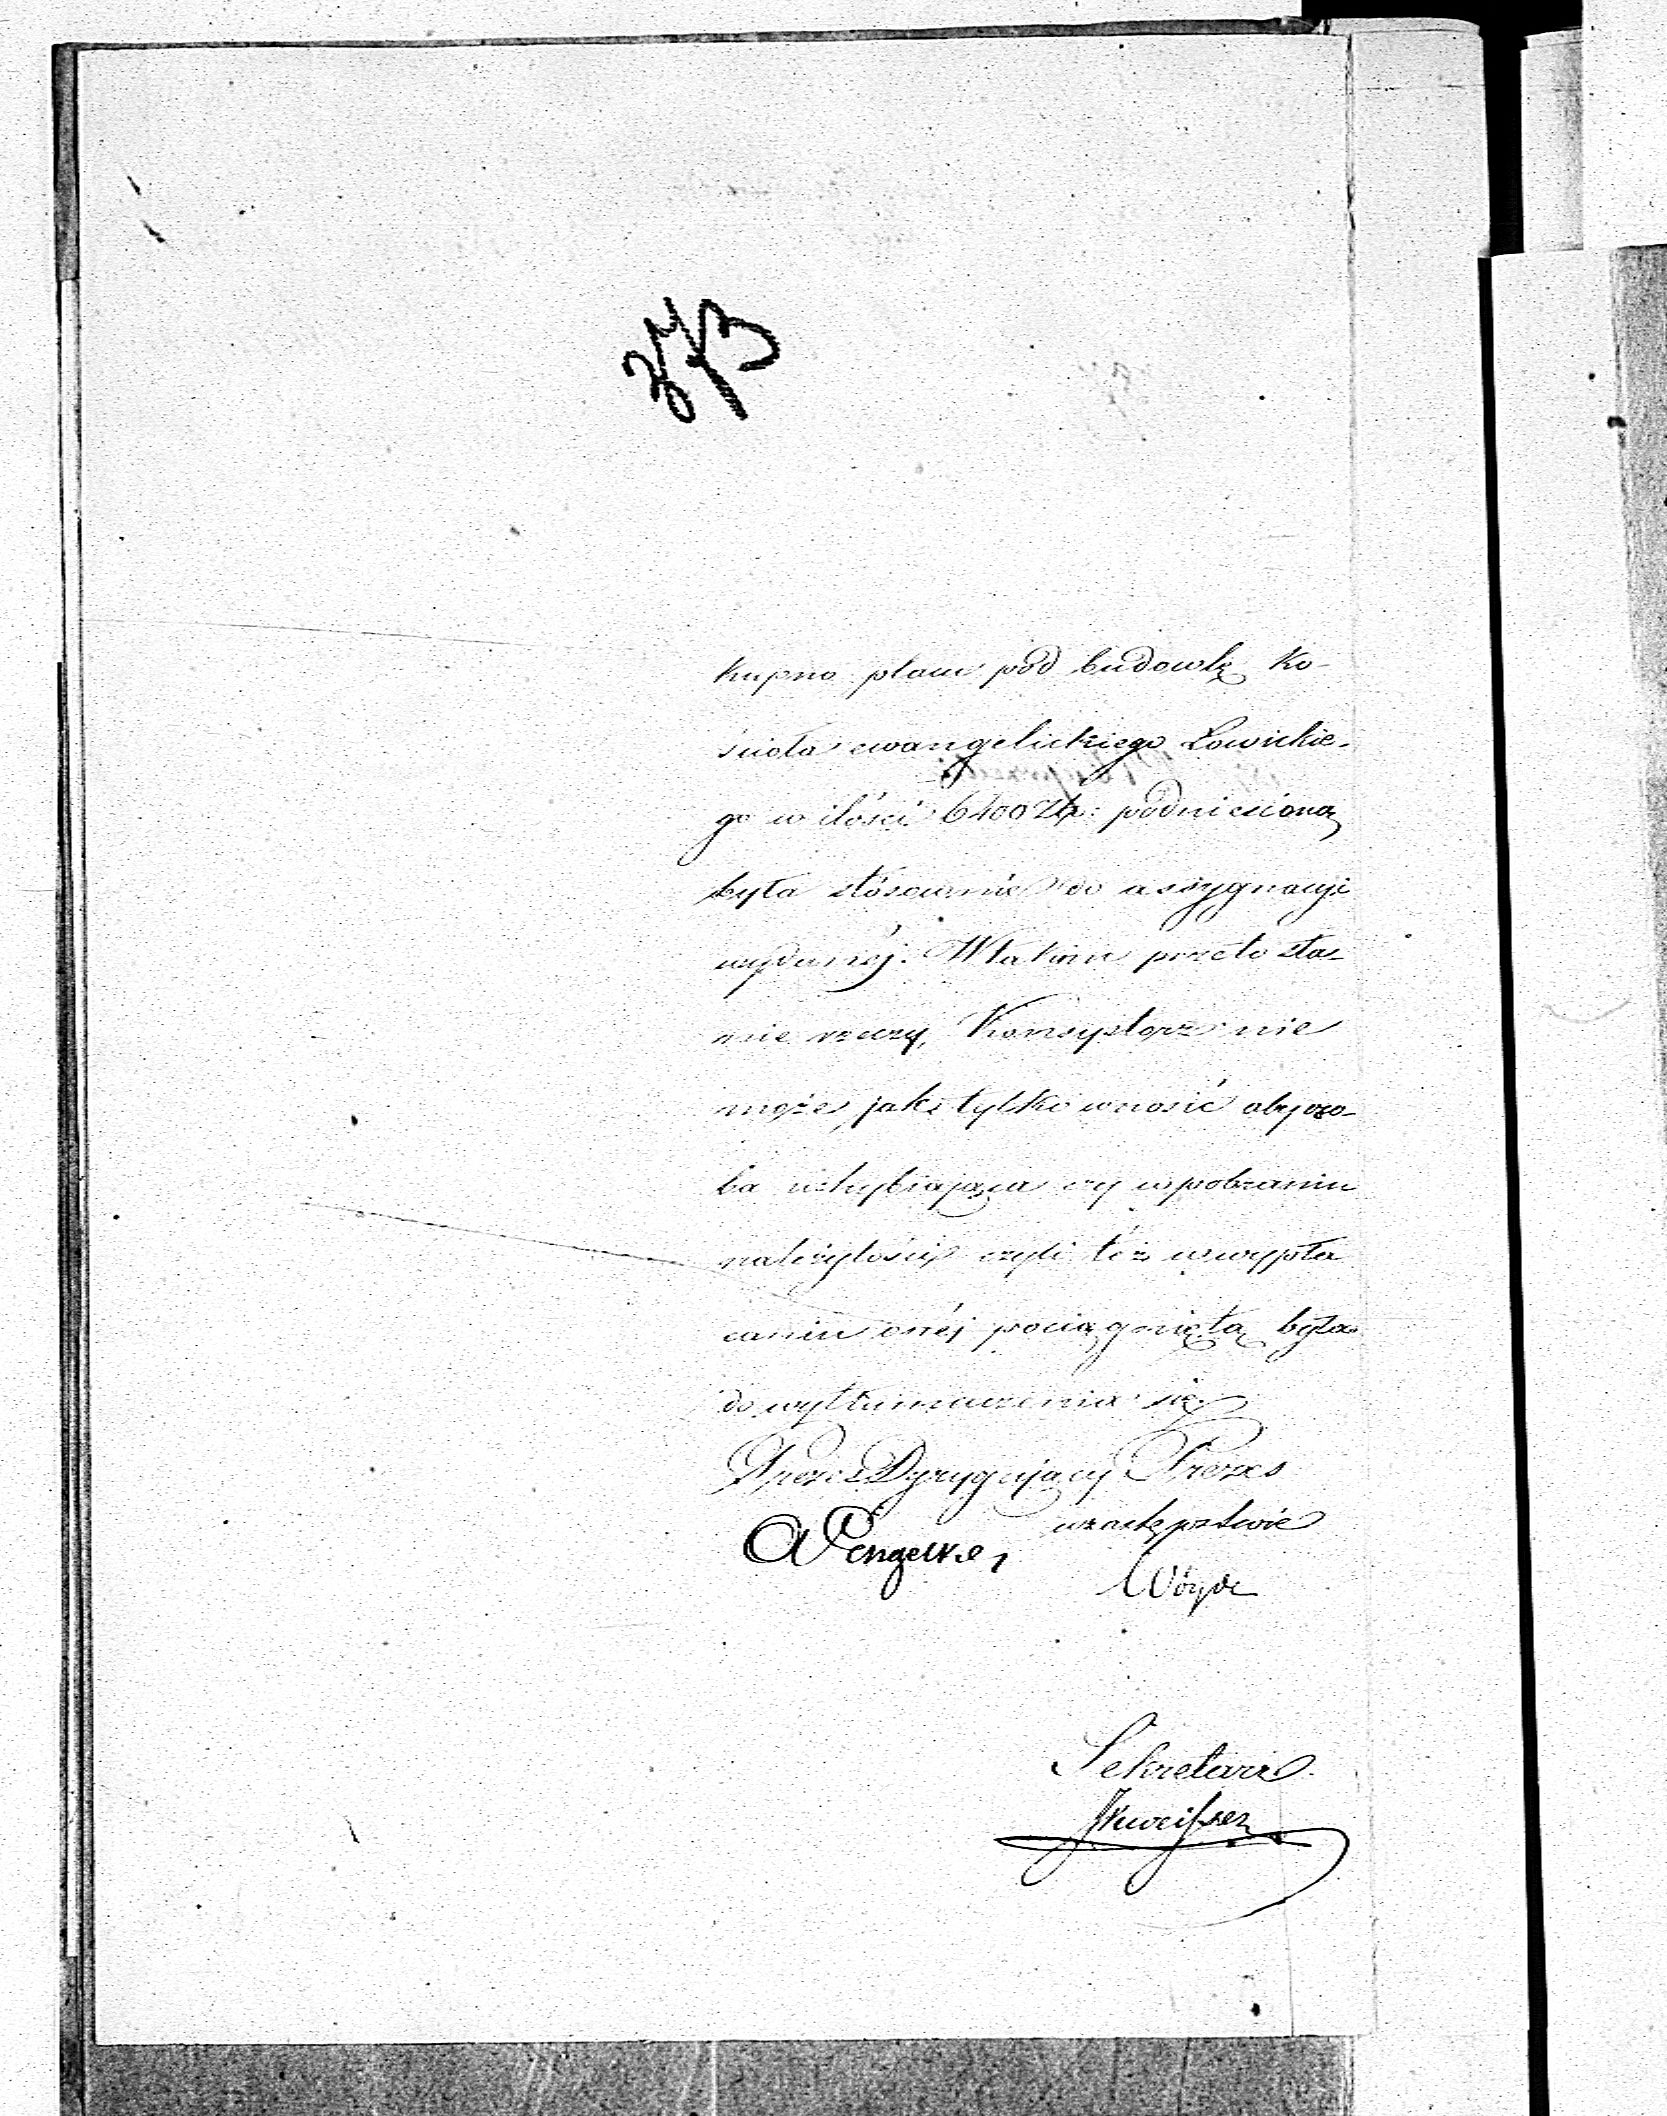 kupno placu pod budowlę Ko-
ścioła ewangelickiego Łowickie-
go w ilości 6400 Złp: podniesioną
była stósownie do assygnacyi
wydanéj. W takim przeto sta-
nie rzeczy, Konsystorz nie
może jak tylko wnosić aby oso-
ba uchybiająca czy w pobraniu
należytości czyli téż w wypła
caniu onéj pociągniętą była
do wytłumaczenia się.
Prezes Dyrygujący Prezes
w zastępstwie
Sekretarz